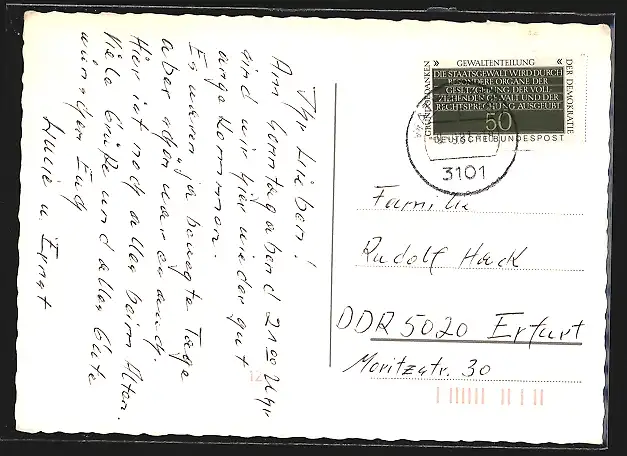 Ihr Lieben!
Am Sonntagabend 21 00 Uhr
sind wir hier wieder gut
angekommen.
Es waren ja bewegte Tage
aber schön war es auch.
Hier ist noch alles beim Alten.
Viele Grüße und alles Gute
wünschen Euch
u Ernst
» GEWALTENTEILUNG «
GRUNDGEDANKEN
DER DEMOKRATIE
DIE STAATSGEWALT WIRD DURCH
BESONDERE ORGANE DER
GESETZGEBUNG DER VOLL
ZIEHENDEN GEWALT UND DER
RECHTSPRECHUNG AUSGEÜBT
50
DEUTSCHE BUNDESPOST
3101
Familie
Rudolf Hack
DDR 5020 Erfurt
Moritzstr. 30
12